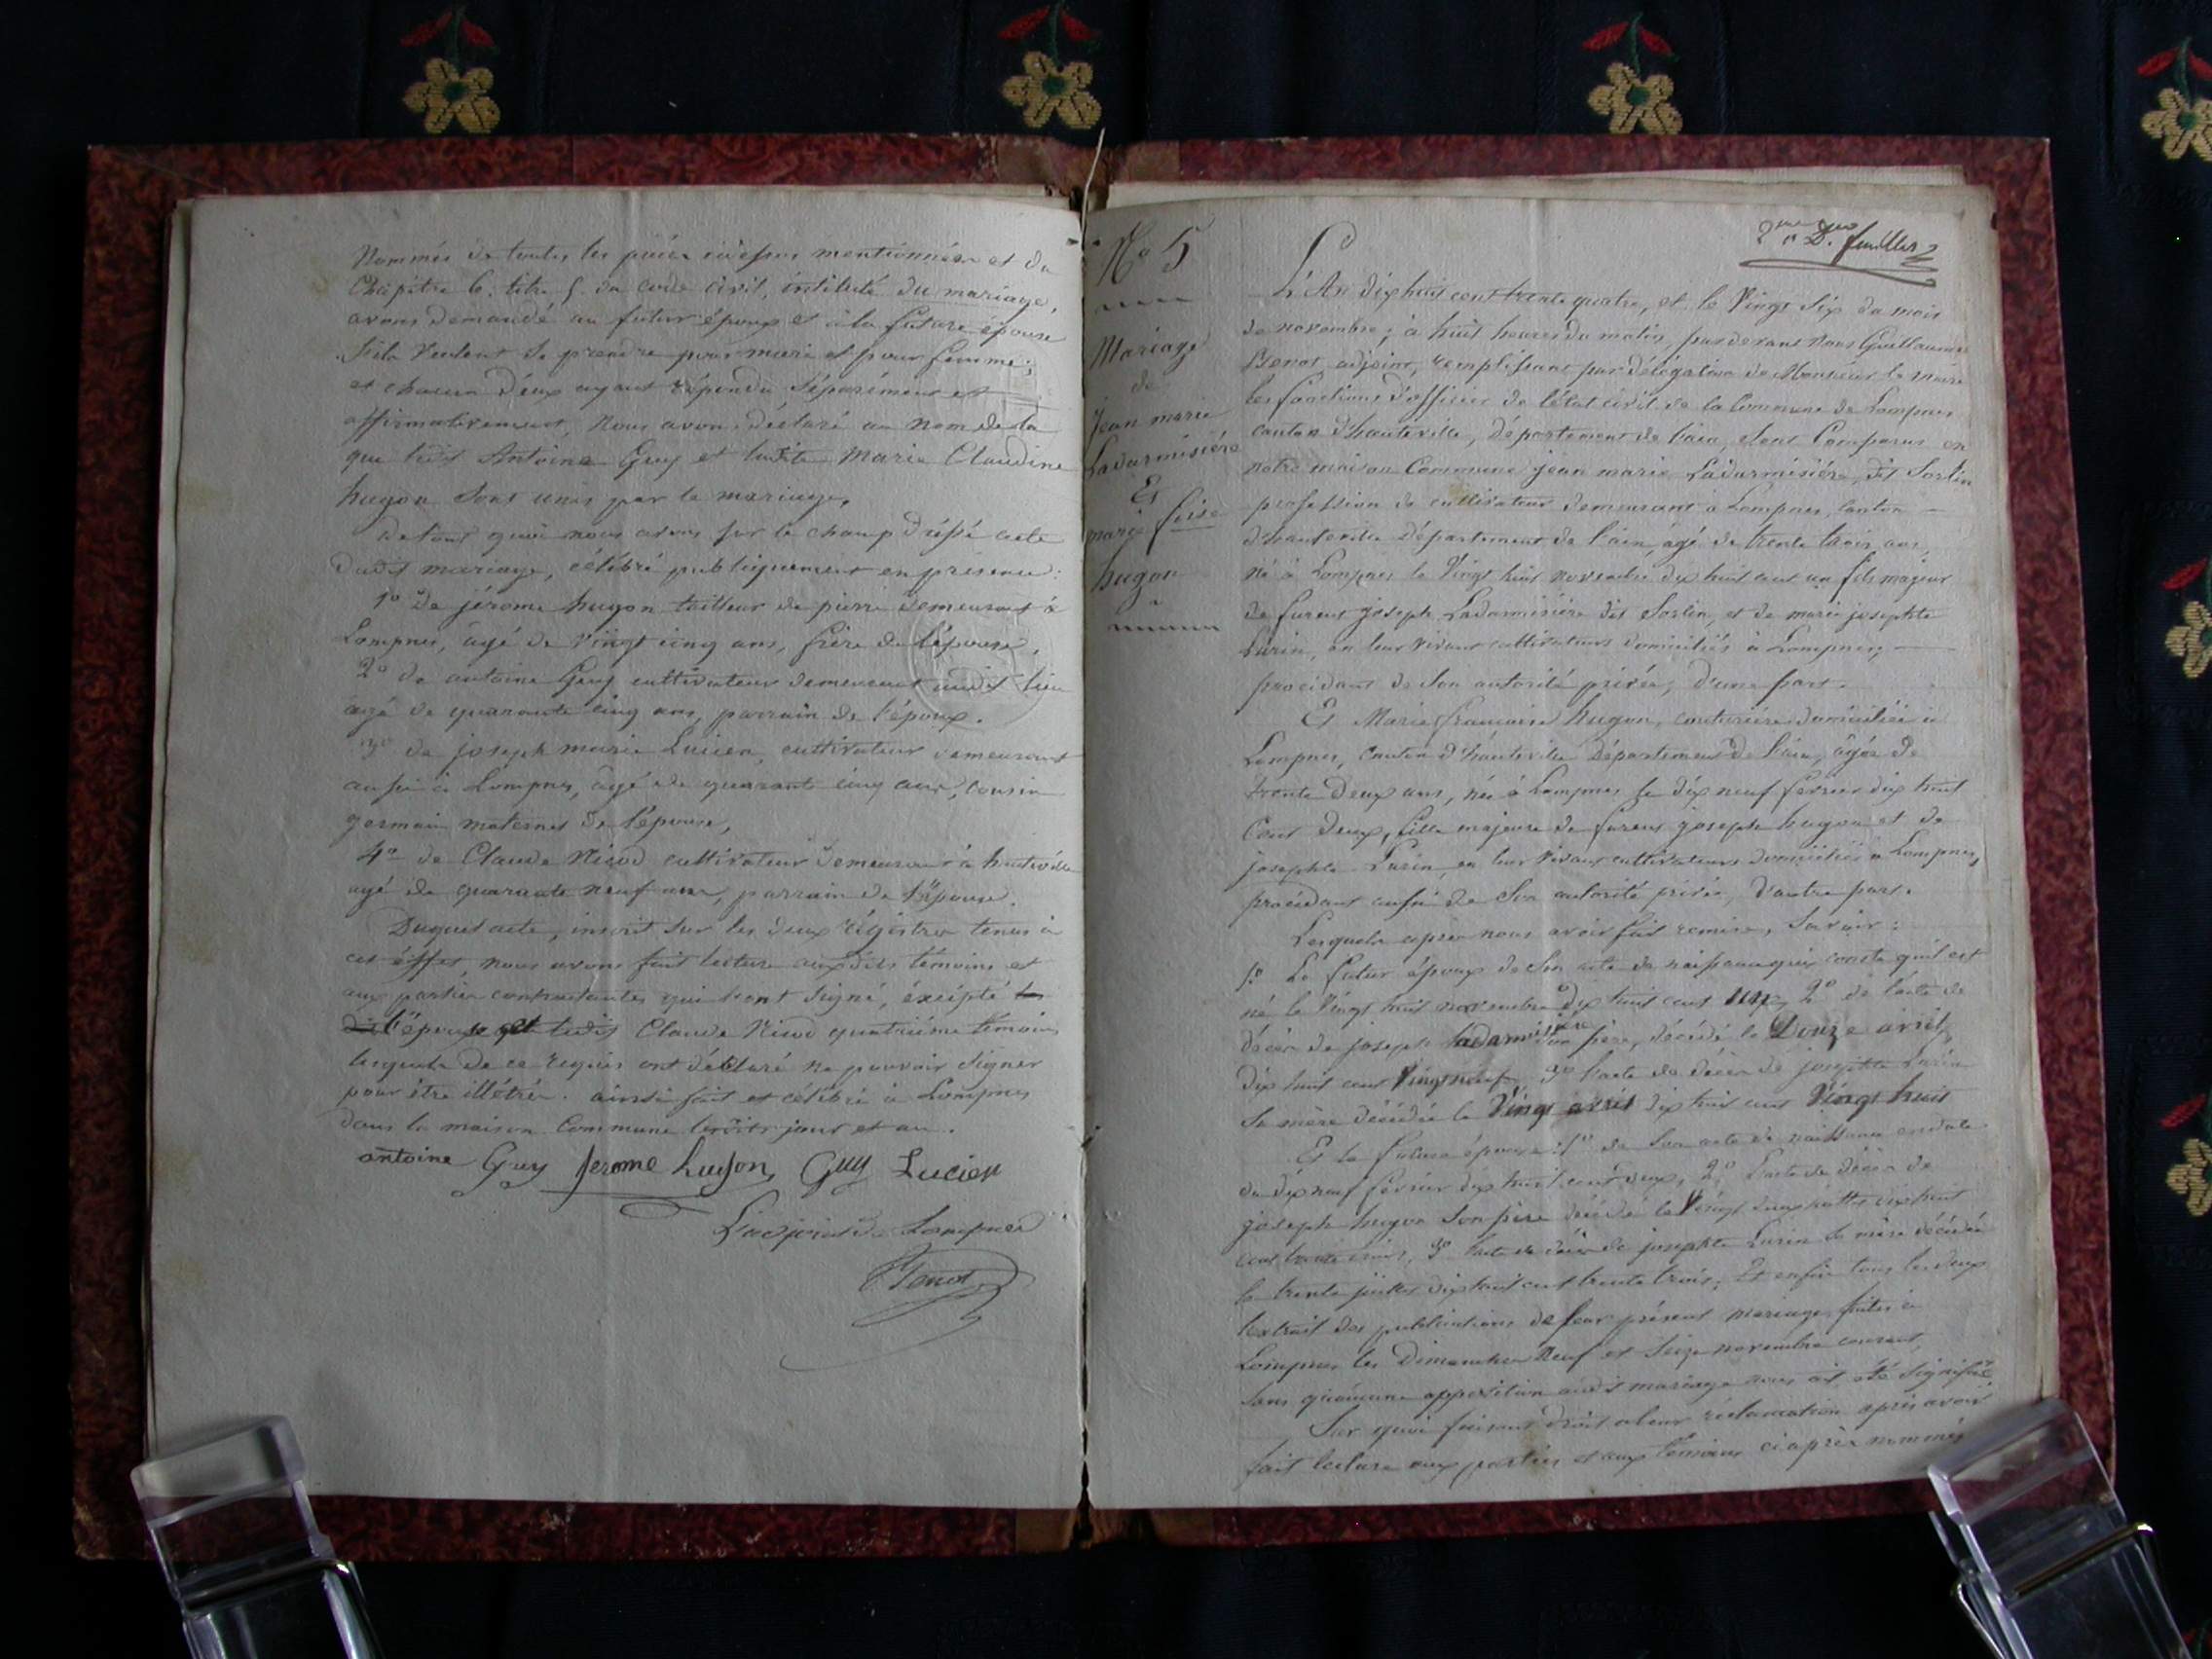 Nommés de toutes les pièces ci-dessus mentionnées et du
Chapitre 6. titre 5. du code civil, intitulé du mariage,
avons demandé au futur époux et à la future épouse
s'ils veulent se prendre pour mari et pour femme;
et chacun d'eux ayant répondu séparément et
affirmativement, nous avons déclaré au nom de la
que Antoine Guy et ladite Marie Claudine
hugon sont unis par le mariage,
de tout quoi nous avons sur le champ dréssé acte
dudit mariage, célébré publiquement en présence:
1º de jérome hugon tailleur de pierre demeurant à
Lompnes, âgé de vingt cinq ans, frère de l'épouse,
2º de antoine Guy cultivateur demeurant audit lieu
âgé de quarante cinq ans, parrain de l'époux.
3º de joseph marie Lucien, cultivateur demeurant
aussi à Lompnes, âgé de quarante cinq ans, cousin
germain maternel de l'épouse,
4º de Claude Nicod cultivateur demeurant à hauteville
agé de quarante neuf ans, parrain de l'épouse.
Duquel acte, inscrit sur les deux régistres tenus à
cet éffet, nous avons fait lecture auxdits témoins et
aux parties contractantes qui l'ont signé, éxcépté
l'épouse et ledit Claude Nicod quatrième témoin
lesquels de ce requis ont déclaré ne pouvoir signer
pour être illétrés. ainsi fait et célébré à Lompnes
dans la maison Commune lesdits jour et an.
antoine Guy Jerome hugon Guy Lucien
L'adjoint de Lompnes
Benot
2me feuillet
Nº 5
Mariage
de
Jean marie
Ladarmisiére
Et
marie foise
hugon
L'An dix huit cent trente quatre, et le Vingt Six du mois
de novembre; à huit heures du matin, pardevant Nous Guillaume
Benot adjoint, remplissant par délégation de Monsieur le maire
les fonctions d'officier de l'état civil de la commune de Lompnes
canton d'hauteville, département de l'ain, sont Comparus en
notre maison Commune jean marie Ladarmisiére, dit Sorlin
profession de cultivateur demeurant à Lompnes, canton
d'hauteville département de l'ain, âgé de trente trois ans,
né à Lompnes le Vingt huit novembre dix huit cent un fils majeur
de furent joseph Ladarmisière dit Sorlin, et de marie josephte
Lurin, en leur vivant cultivateurs domiciliés à Lompnes,
procédant de son autorité privée, d'une part.
Et Marie françoise hugon, couturière domiciliée à
Lompnes, Canton d'hauteville département de l'ain, âgée de
trente deux ans, née à Lompnes le dix neuf février dix huit
Cent deux, fille majeure de furent joseph hugon et de
josephte Lurin, en leur vivant cultivateurs domiciliés à Lompnes,
procédant aussi de son autorité privée, d'autre part.
Lesquels après nous avoir fait remise, Savoir:
1º Le futur époux de son acte de naissance qui constate qu'il est
né le Vingt huit novembre dix huit cent un, 2º de l'acte de
décès de joseph ladarmisière son père, décédé le Douze avril
dix huit cent vingt neuf, 3º l'acte de décès de josephte Lurin
sa mère décédée le Vingt avril dix huit cent Vingt huit
Et la future épouse: 1º de son acte de naissance en date
du dix neuf février dix huit cent deux, 2º l'acte de décès de
joseph hugon son père décédé le Vingt deux juillet dix huit
cent trente trois, 3º l'acte de décès de josephte Lurin sa mère décédée
le trente juillet dix huit cent trente trois; Et enfin tous les deux
l'extrait des publications de leur présent mariage, faites à
Lompnes les Dimanches Neuf et Seize novembre courant,
sans qu'aucune opposition audit mariage nous ait été signifié
Sur quoi faisant droit à leur réclamation après avoir
fait lecture aux parties et aux témoins ci après nommés